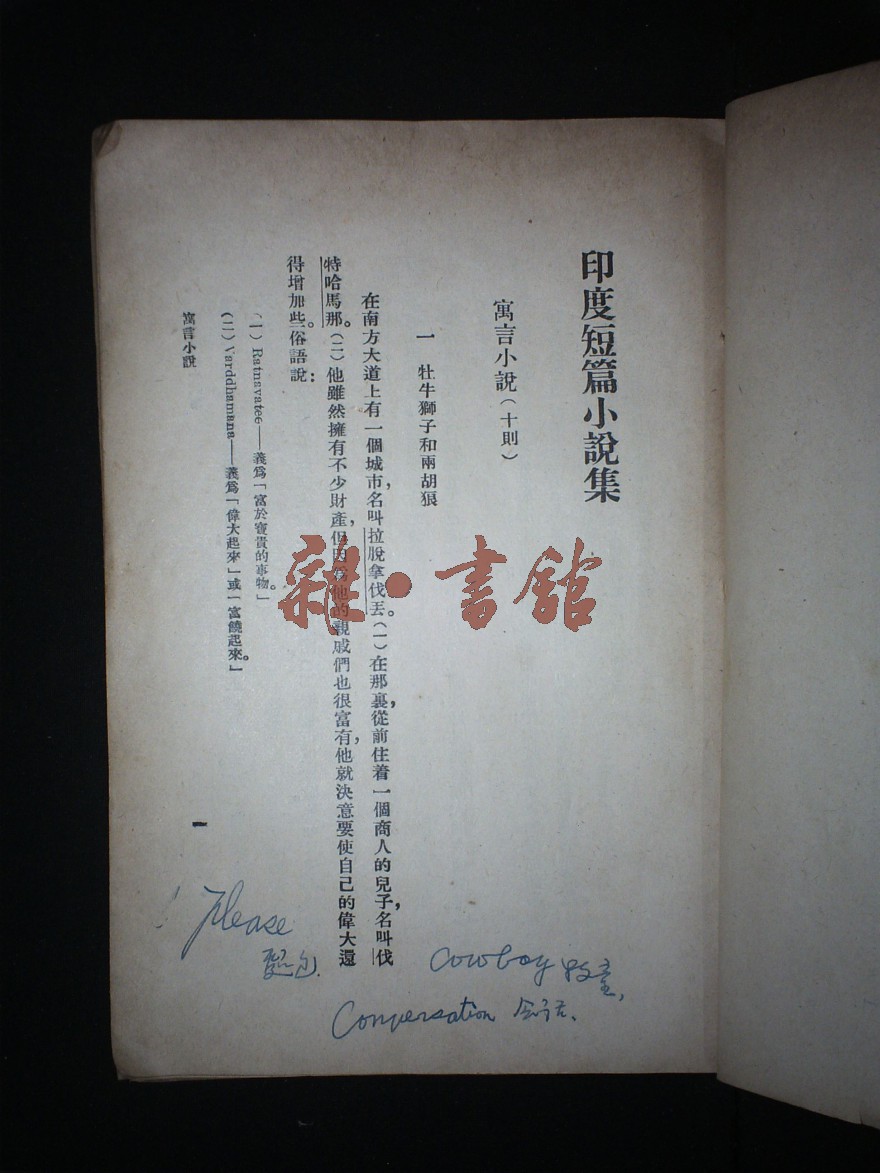 印度短篇小說集
寓言小說(十則)
一 牡牛獅子和兩胡狼
在南方大道上有一個城市,名叫拉脫拿伐丟。(一)在那裏,從前住着一個商人的兒子,名叫伐
特哈馬那。(二)他雖然擁有不少財產,但因爲他的親戚們也很富有,他就決意要使自己的偉大還
得增加些。俗語說:
(一)Ratnavatee——義爲「富於寶貴的事物。」
(二)Varddhamana——義爲「偉大起來」或「富饒起來。」
寓言小說
一
雜·書館
Please
Cowboy 牧童,
Conversation 会话、